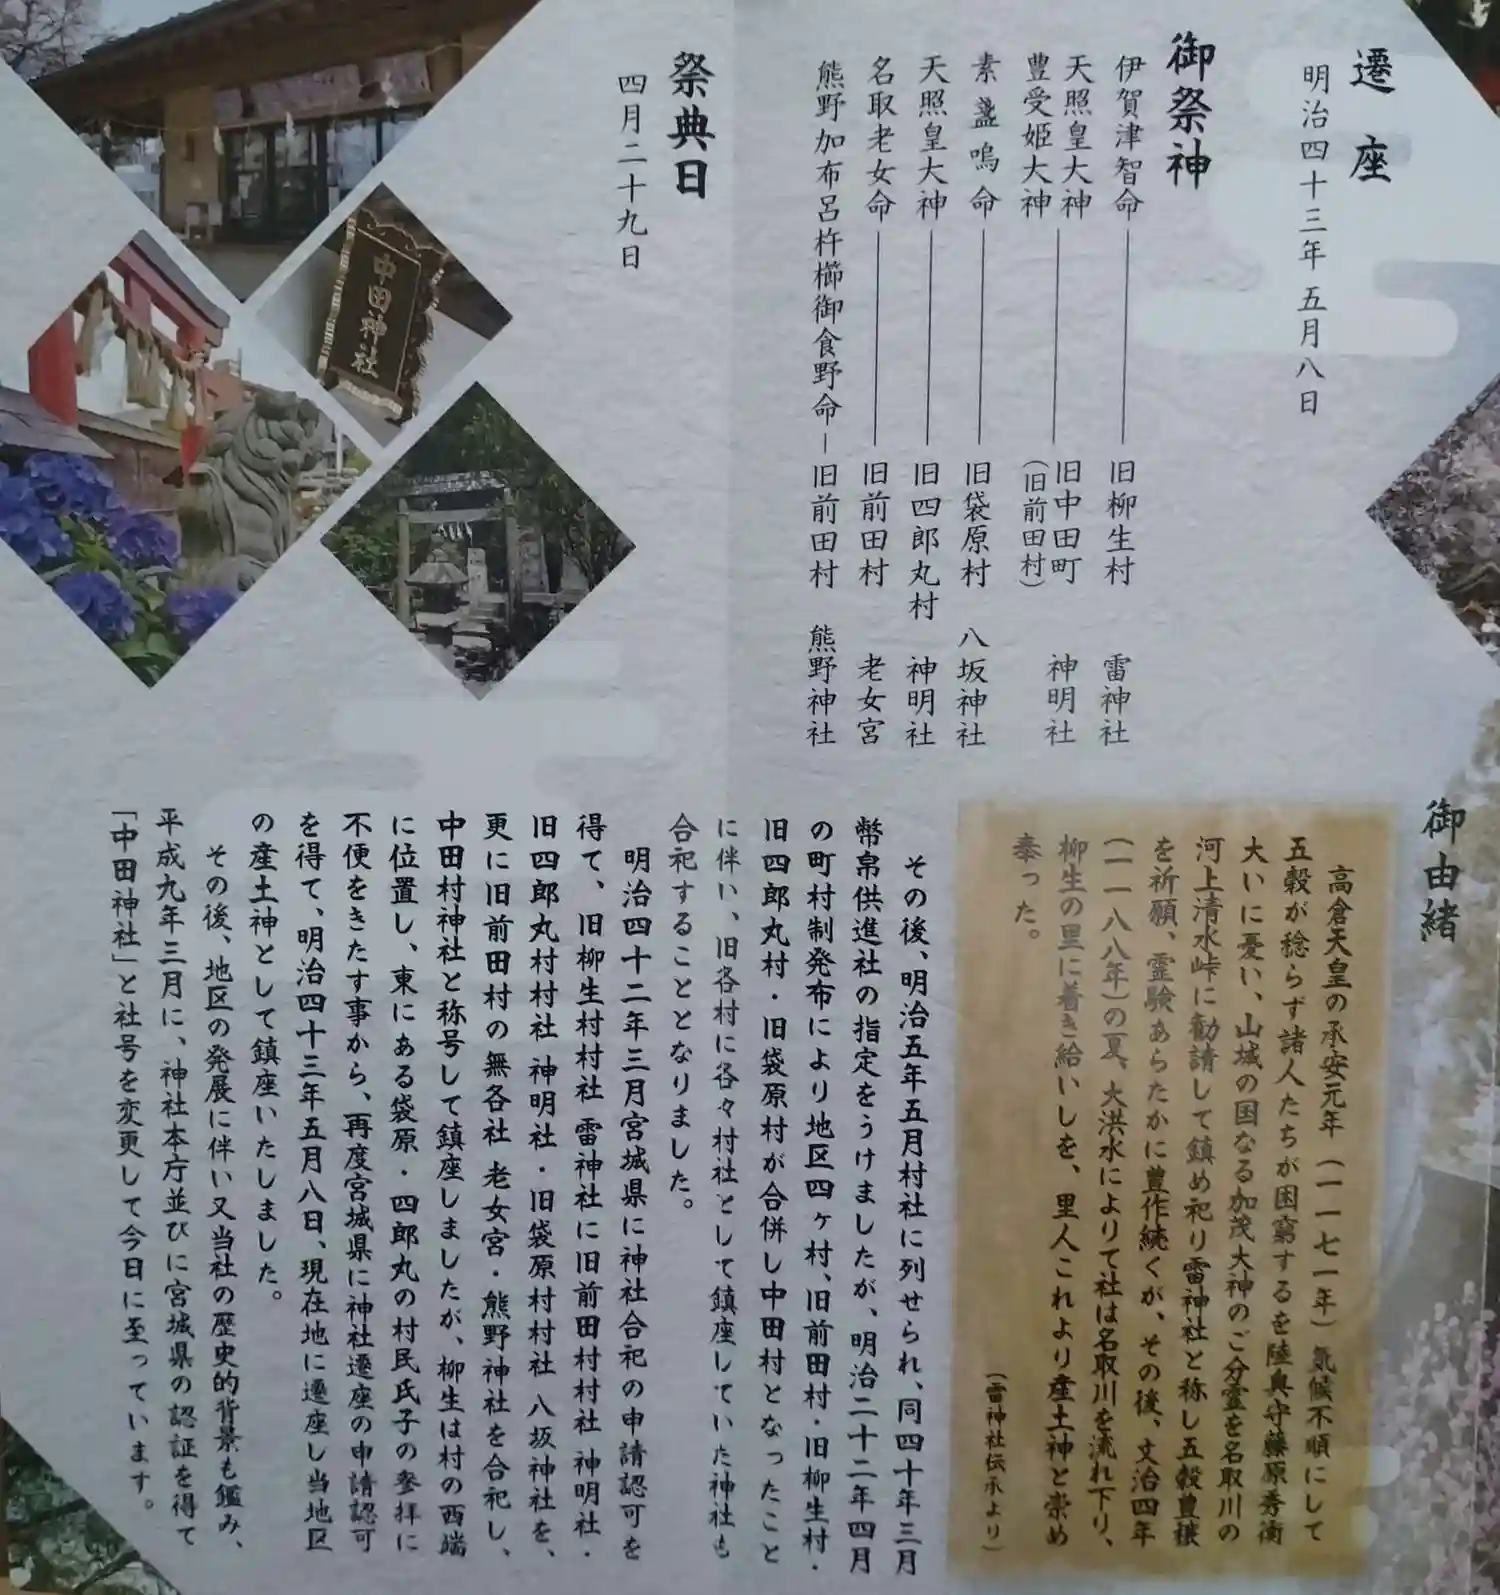 遷座
明治四十三年五月八日
御祭神
伊賀津智命――――旧柳生村　雷神社
天照皇大神
豊受姫大神――――旧中田町　神明社
（旧前田村）
素盞嗚命――――旧袋原村　八坂神社
天照皇大神――――旧四郎丸村　神明社
名取老女命――――旧前田村　老女宮
熊野加布呂杵櫛御食野命―旧前田村　熊野神社
祭典日
四月二十九日
中田神社
御由緒
高倉天皇の承安元年（一一七一年）気候不順にして
五穀が稔らず諸人たちが困窮するを陸奥守藤原秀衡
大いに憂い、山城の国なる加茂大神のご分霊を名取川の
河上清水峠に勧請して鎮め祀り雷神社と称し五穀豊穣
を祈願、霊験あらたかに豊作続くが、その後、文治四年
（一一八八年）の夏、大洪水によりて社は名取川を流れ下り、
柳生の里に着き給いしを、里人これより産土神と崇め
奉った。
（雷神社伝承より）
その後、明治五年五月村社に列せられ、同四十年三月
幣帛供進社の指定をうけましたが、明治二十二年四月
の町村制発布により地区四ヶ村、旧前田村・旧柳生村・
旧四郎丸村・旧袋原村が合併し中田村となったこと
に伴い、旧各村に各々村社として鎮座していた神社も
合祀することとなりました。
明治四十二年三月宮城県に神社合祀の申請認可を
得て、旧柳生村村社 雷神社に旧前田村村社 神明社・
旧四郎丸村村社 神明社・旧袋原村村社 八坂神社を、
更に旧前田村の無各社 老女宮・熊野神社を合祀し、
中田村神社と称号して鎮座しましたが、柳生は村の西端
に位置し、東にある袋原・四郎丸の村民氏子の参拝に
不便をきたす事から、再度宮城県に神社遷座の申請認可
を得て、明治四十三年五月八日、現在地に遷座し当地区
の産土神として鎮座いたしました。
その後、地区の発展に伴い又当社の歴史的背景も鑑み、
平成九年三月に、神社本庁並びに宮城県の認証を得て
「中田神社」と社号を変更して今日に至っています。